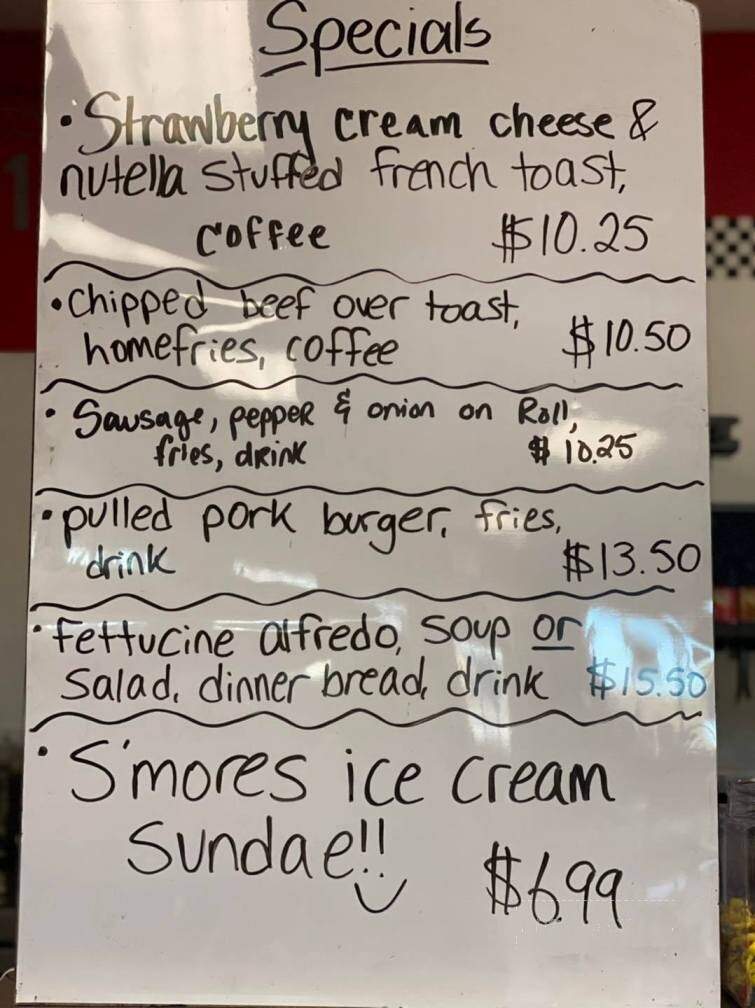 Specials
• Strawberry cream cheese &
nutella stuffed french toast,
coffee $10.25
• chipped beef over toast,
homefries, coffee $10.50
• Sausage, pepper & onion on Roll,
fries, drink $10.25
• pulled pork burger, fries,
drink $13.50
• fettucine alfredo, soup or
salad, dinner bread, drink $15.50
• S'mores ice cream
Sundae!! $6.99